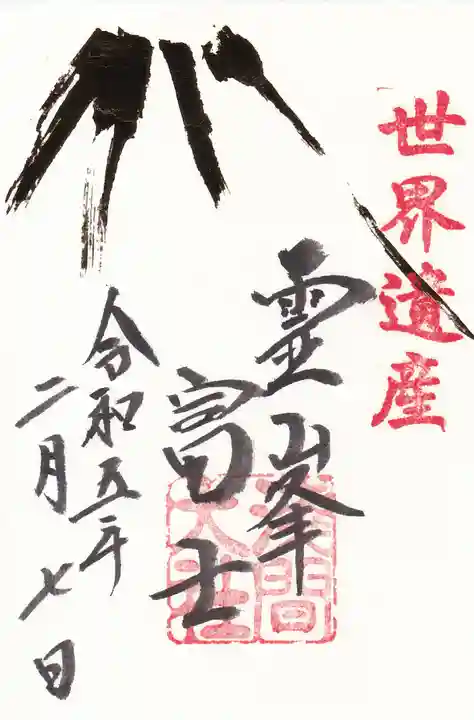 世界遺産
霊峯
富士
浅間
大社
令和五年
二月七日